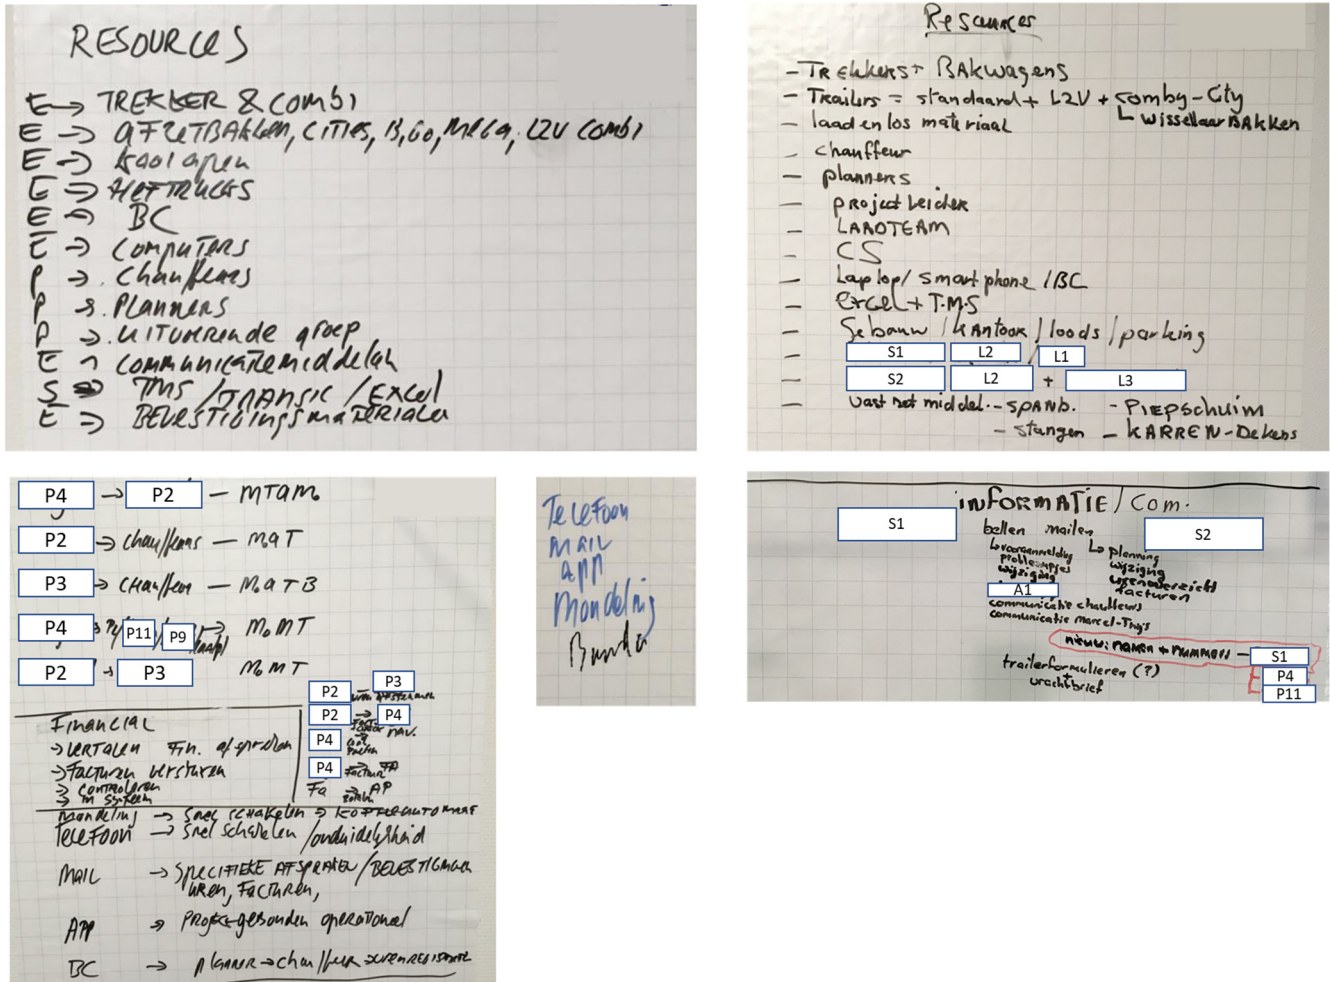 RESOURCES
E → TREKKER & COMBI
E → AFZETBAKKEN, CITIES, B,GO, MEGA, L2V COMBI
E →
E → HEFTRUCKS
E → BC
E → COMPUTERS
P → CHAUFFEURS
P → PLANNERS
P → UITVOERENDE GROEP
E → COMMUNICATIEMIDDELEN
S → TMS / TRANSIC / EXCEL
E → BEVESTIGINGSMATERIALEN
Resources
- TREKKERS + BAKWAGENS
- Trailers = standaard + L2V + comby-City
↳ wissellaarBAKKEN
- laad en los materiaal
- chauffeur
- planners
- project leider
- LAADTEAM
- CS
- Laptop / smart phone / BC
- excel + T.M.S
- Gebouw / KANTOOR / loods / parking
- S1 L2 / L1
- S2 L2 + L3
- vast zet middel. - SPANB. - PIEPSCHUIM
- stangen - KARREN - Dekens
P4 → P2 - MTAM.
P2 → chauffeurs - MAT
P3 → chauffeur - MATB
P4 → P11 P9 → M.MT
P2 → P3 M.MT
P2 - P3
P2 → P4
NAV.
P4 →
P4 → FA
Factuur
Fa → AP
FINANCIAL
→ VERTALEN FIN. afspraken
→ Facturen versturen
→ CONTROLEREN
→ IN SYSTEEM
Mondeling → SNEL SCHAKELEN → KOFFIEAUTOMAAT
TELEFOON → Snel schakelen / onduidelijkheid
MAIL → SPECIFIEKE AFSPRAKEN / BEVESTIGINGEN
UREN, FACTUREN,
APP → Projectgebonden operationeel
BC → planner → chauffeur → urenregistratie
TELEFOON
MAIL
APP
Mondeling
INFORMATIE / Com.
S1
S2
bellen mailen
↳ vooraanmelding
↳ planning
wijziging
wijziging
urenoverzicht
facturen
A1
communicatie chauffeurs
communicatie marcel-Thijs
nieuw: namen + nummers - S1
P4
P11
trailerformulieren (?)
+
vrachtbrief